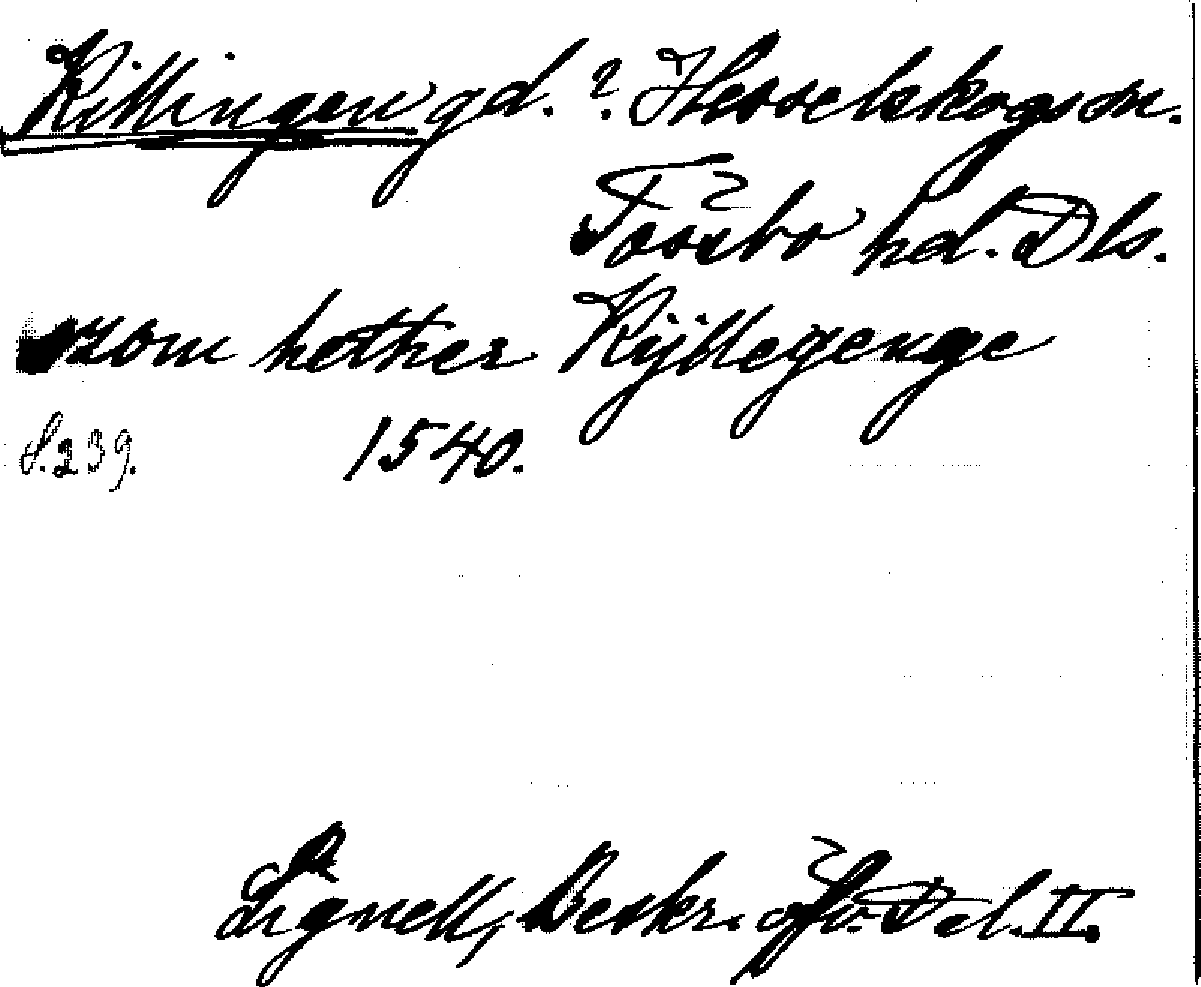 Killingen gd. ? Hesselskogs sn.
Tössbo hd. Dls.
szom hether Kijllegenge
S. 239. 1540.
Lignell, Beskr. öfv. Dal. II.